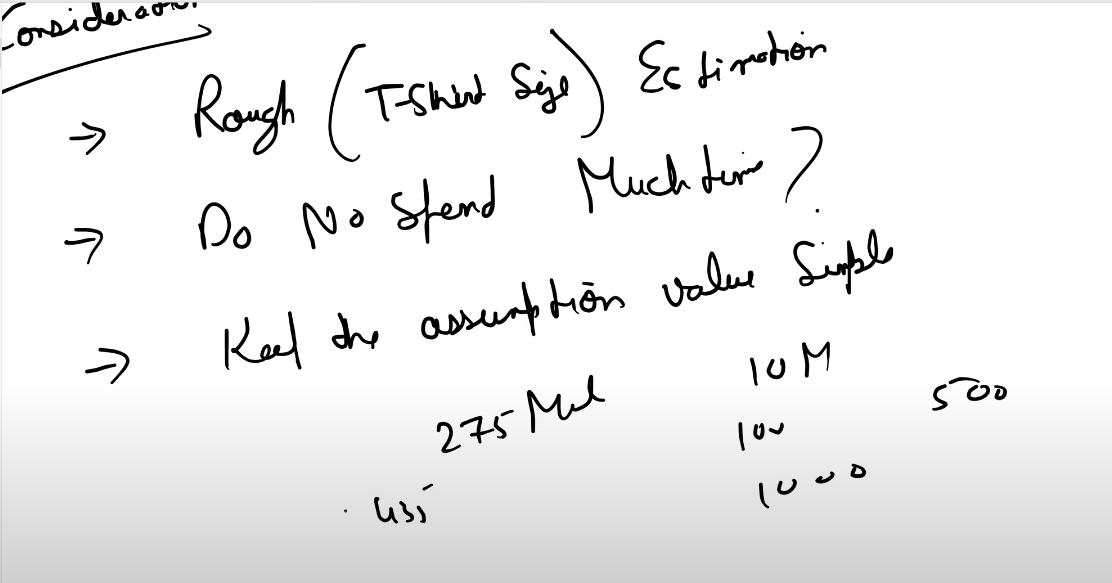 Consideration
→ Rough (T-Shirt Size) Estimation
→ Do No Spend Much time?
→ Keep the assumption value Simple
275 Mil 10 M 500
100
435 1000